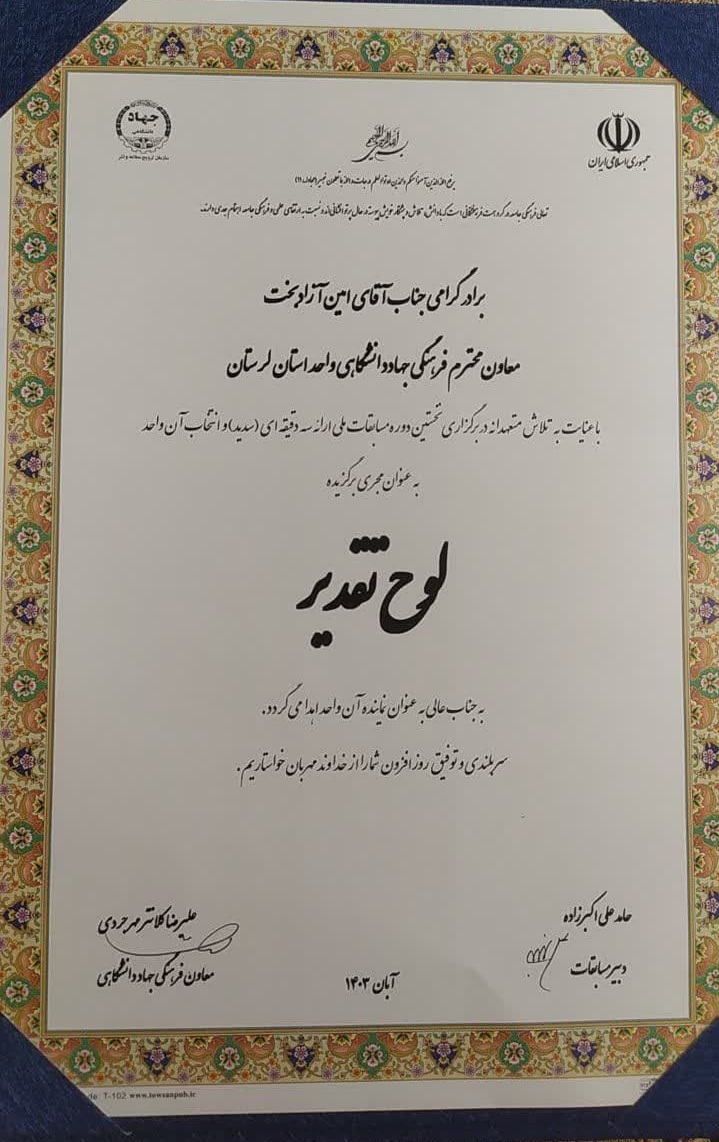 جهاد
دانشگاهی
سازمان ترویج مطالعه و نشر
جمهوری اسلامی ایران
بسم الله الرحمن الرحیم
یرفع الله الذین آمنوا منکم والذین اوتوا العلم درجات والله بما تعلمون خبیر (مجادله، ۱۱)
تعالی فرهنگی جامعه در گرو همت فرهیختگانی است که با دانش، تلاش و پشتکار خویش پیوسته در حال پرتو افشانی بوده نسبت به ارتقای علمی و فرهنگی جامعه اهتمام جدی دارند.
برادر گرامی جناب آقای امین آزادبخت
معاون محترم فرهنگی جهاددانشگاهی واحد استان لرستان
با عنایت به تلاش متعهدانه در برگزاری نخستین دوره مسابقات ملی ارائه سه دقیقه ای (سدید) و انتخاب آن واحد
به عنوان مجری برگزیده
لوح تقدیر
به جناب عالی به عنوان نماینده آن واحد اهدا می گردد.
سربلندی و توفیق روز افزون شما را از خداوند مهربان خواستاریم.
حامد علی اکبرزاده
دبیر مسابقات
آبان ۱۴۰۳
علیرضا کلانتر مهرجردی
معاون فرهنگی جهاددانشگاهی
de: T-102 www.towsanpub.ir